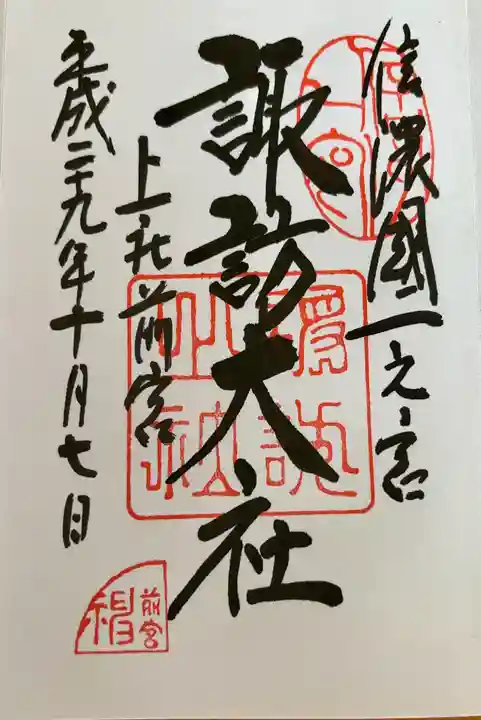 信濃國一之宮
諏訪大社
上社前宮
平成二十九年十月七日
前宮